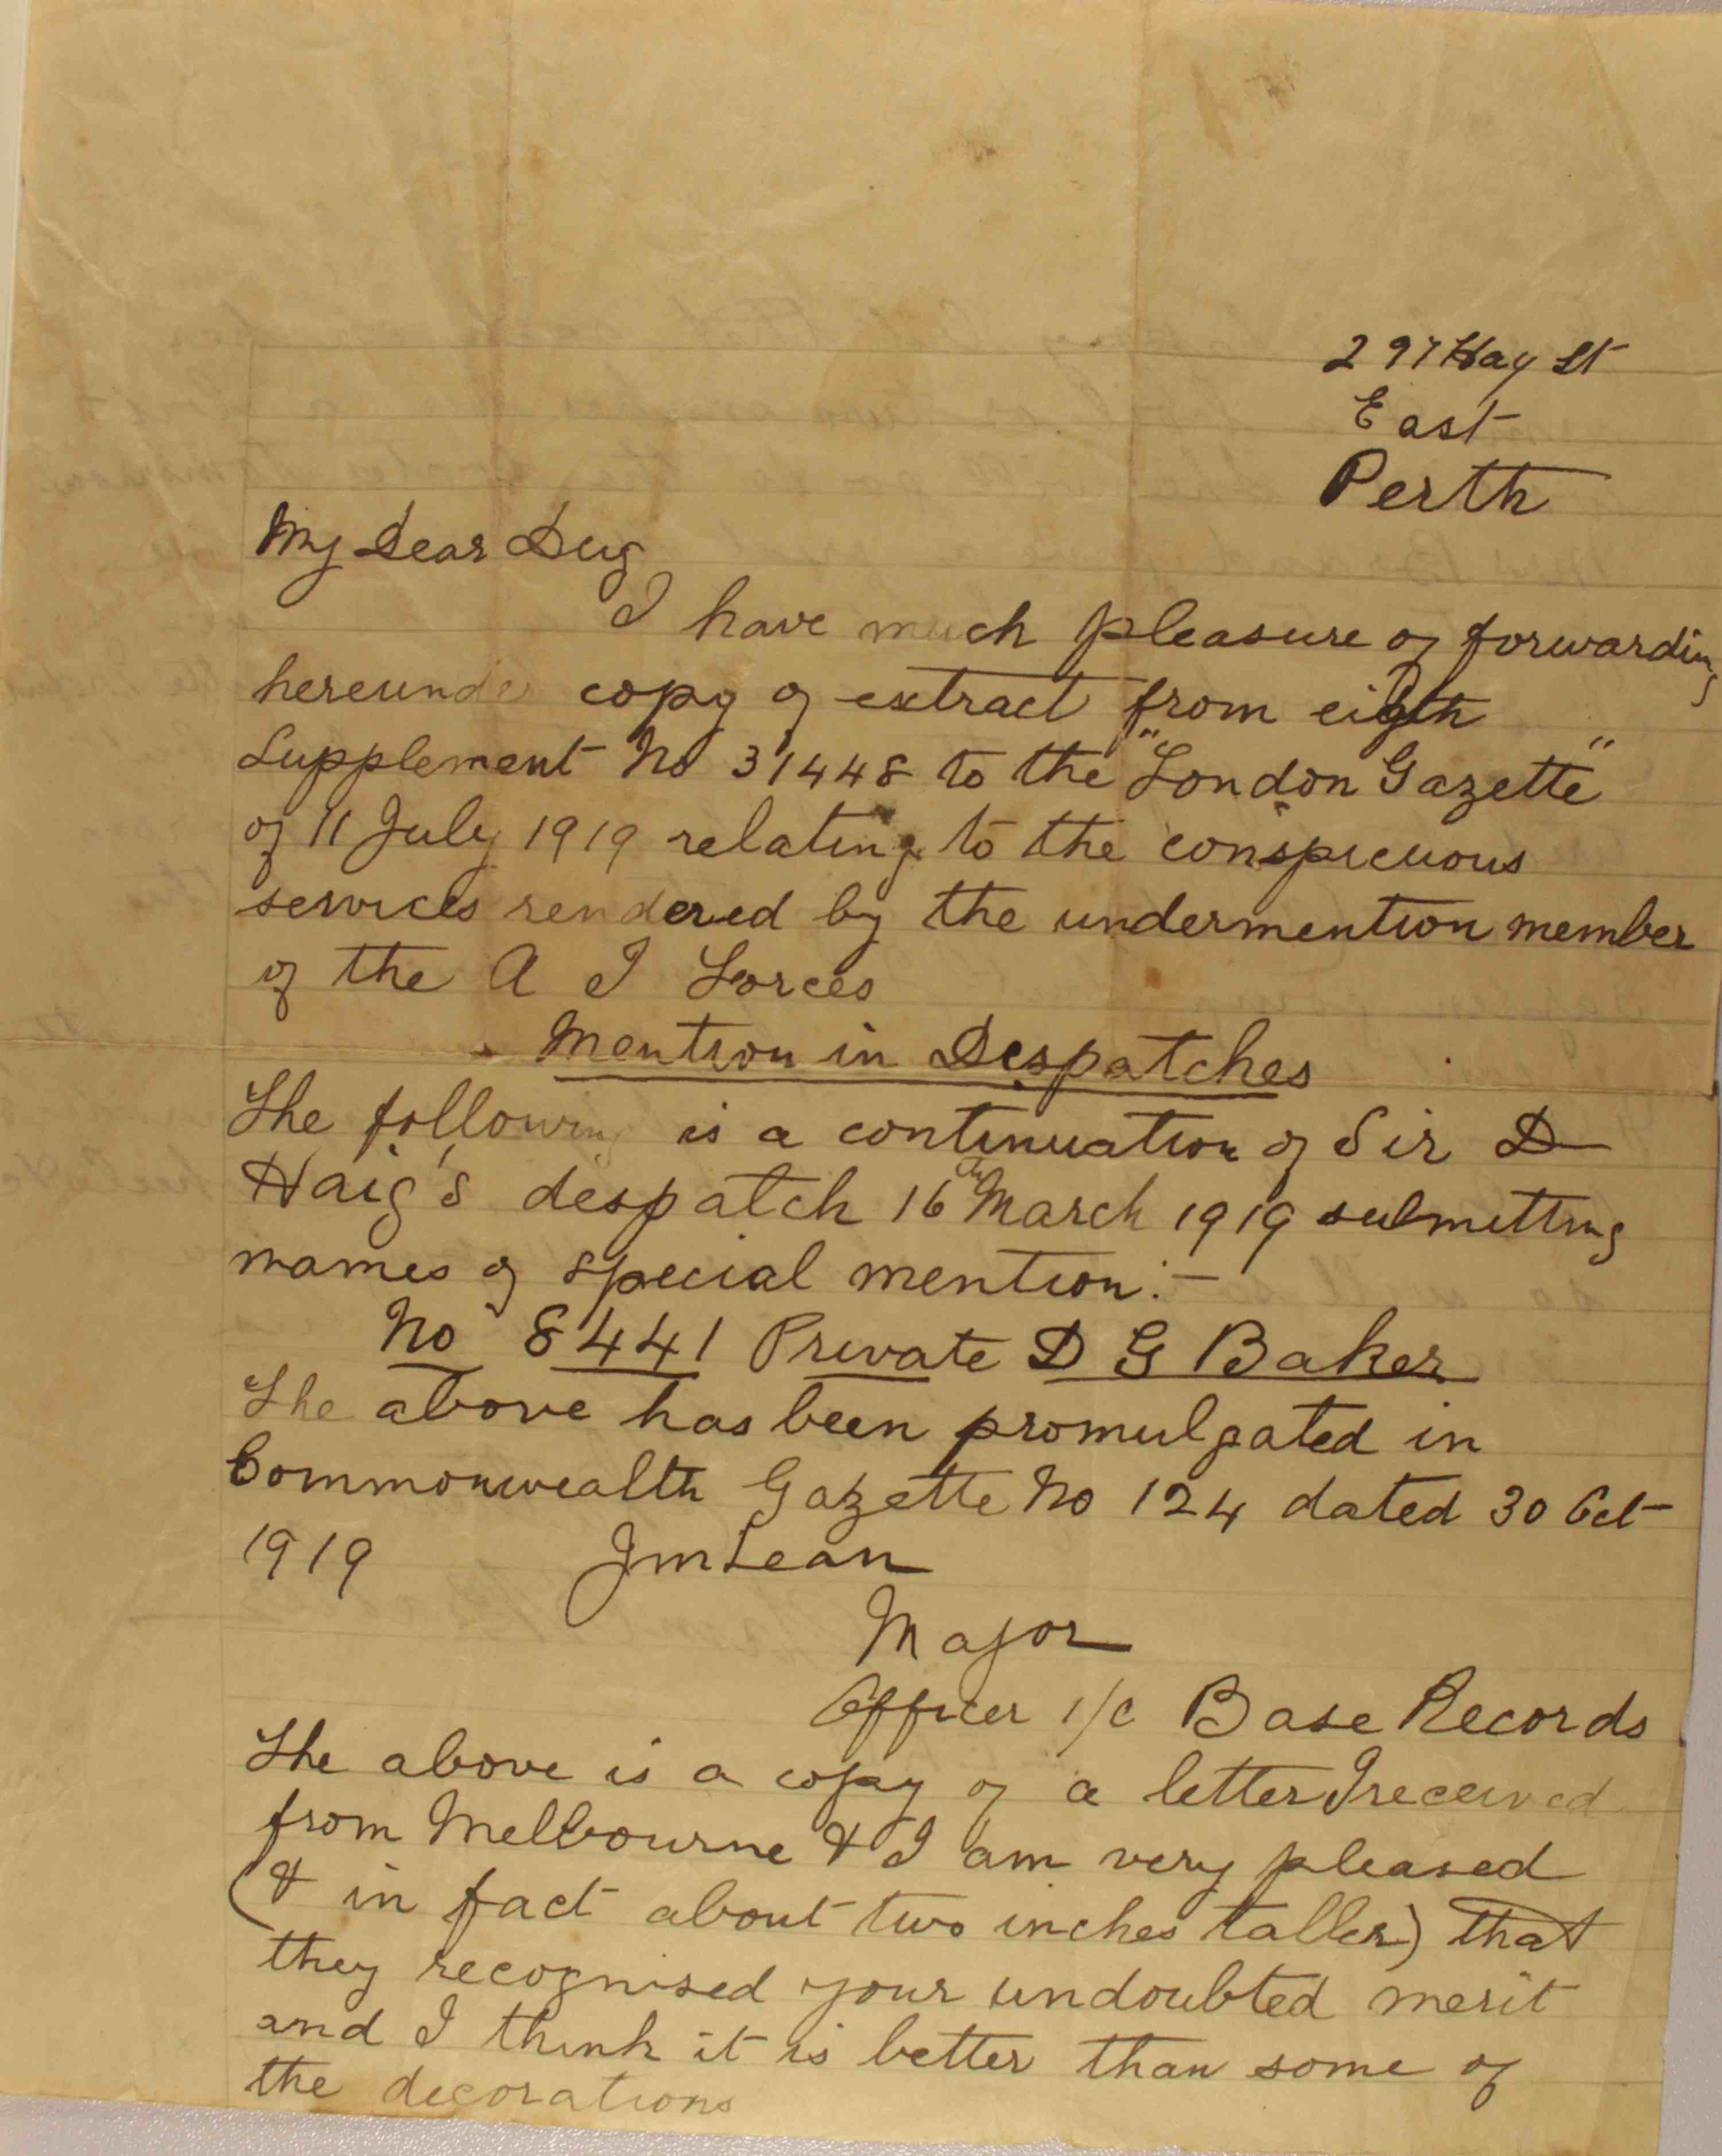 297 Hay St
East
Perth
My Dear Dug
I have much pleasure of forwarding
hereunder copy of extract from eigth
Supplement No 31448 to the "London Gazette"
of 11 July 1919 relating to the conspicuous
services rendered by the undermention member
of the A I Forces
Mention in Despatches
The following is a continuation of Sir D
Haig's despatch 16th March 1919 submitting
names of special mention:-
No 8441 Private D G Baker
The above has been promulgated in
Commonwealth Gazette No 124 dated 30 Oct
1919 JmLean
Major
Officer i/c Base Records
The above is a copy of a letter I received
from Melbourne & I am very pleased
(& in fact about two inches taller) that
they recognised your undoubted merit
and I think it is better than some of
the decorations